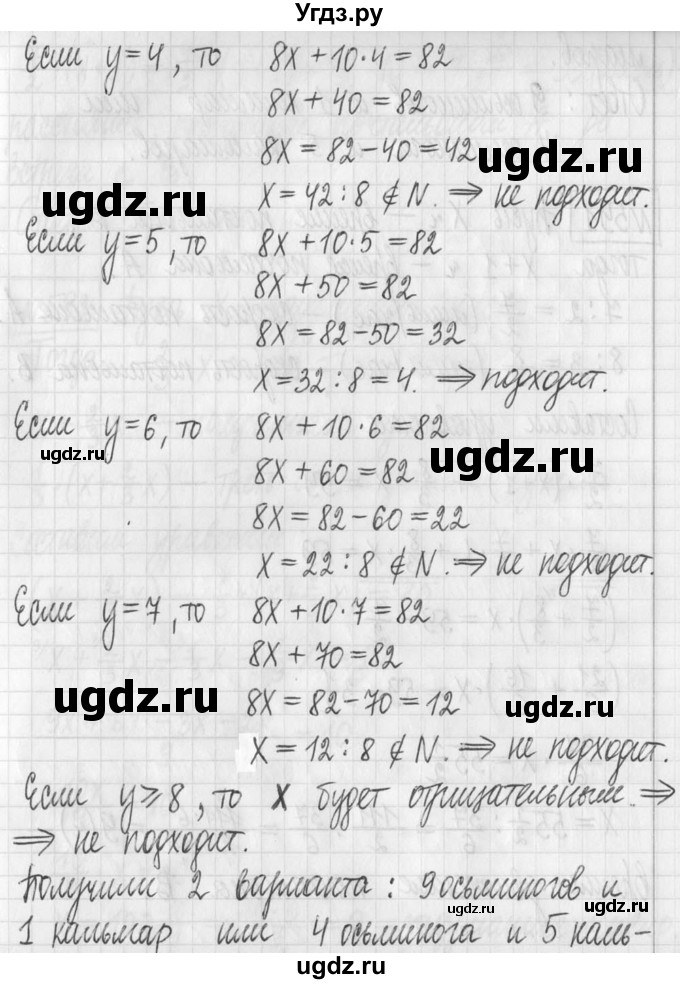 Угдз.ру
Если y=4, то 8x+10·4=82
8x+40=82
8x=82-40=42
ugdz.ru
x=42:8 ∉ N. ⇒ не подходит.
ugdz.ru
Если y=5, то 8x+10·5=82
8x+50=82
8x=82-50=32
x=32:8=4. ⇒ подходит.
Если y=6, то 8x+10·6=82
ugdz.ru
8x+60=82
ugdz.ru
8x=82-60=22
x=22:8 ∉ N. ⇒ не подходит.
Если y=7, то 8x+10·7=82
8x+70=82
ugdz.ru
8x=82-70=12
ugdz.ru
x=12:8 ∉ N. ⇒ не подходит.
Если y⩾8, то x будет отрицательным. ⇒
⇒ не подходит.
Получили 2 варианта: 9 осьминогов и
ugdz.ru
ugdz.ru
1 кальмар или 4 осьминога и 5 каль-
ugdz.ru